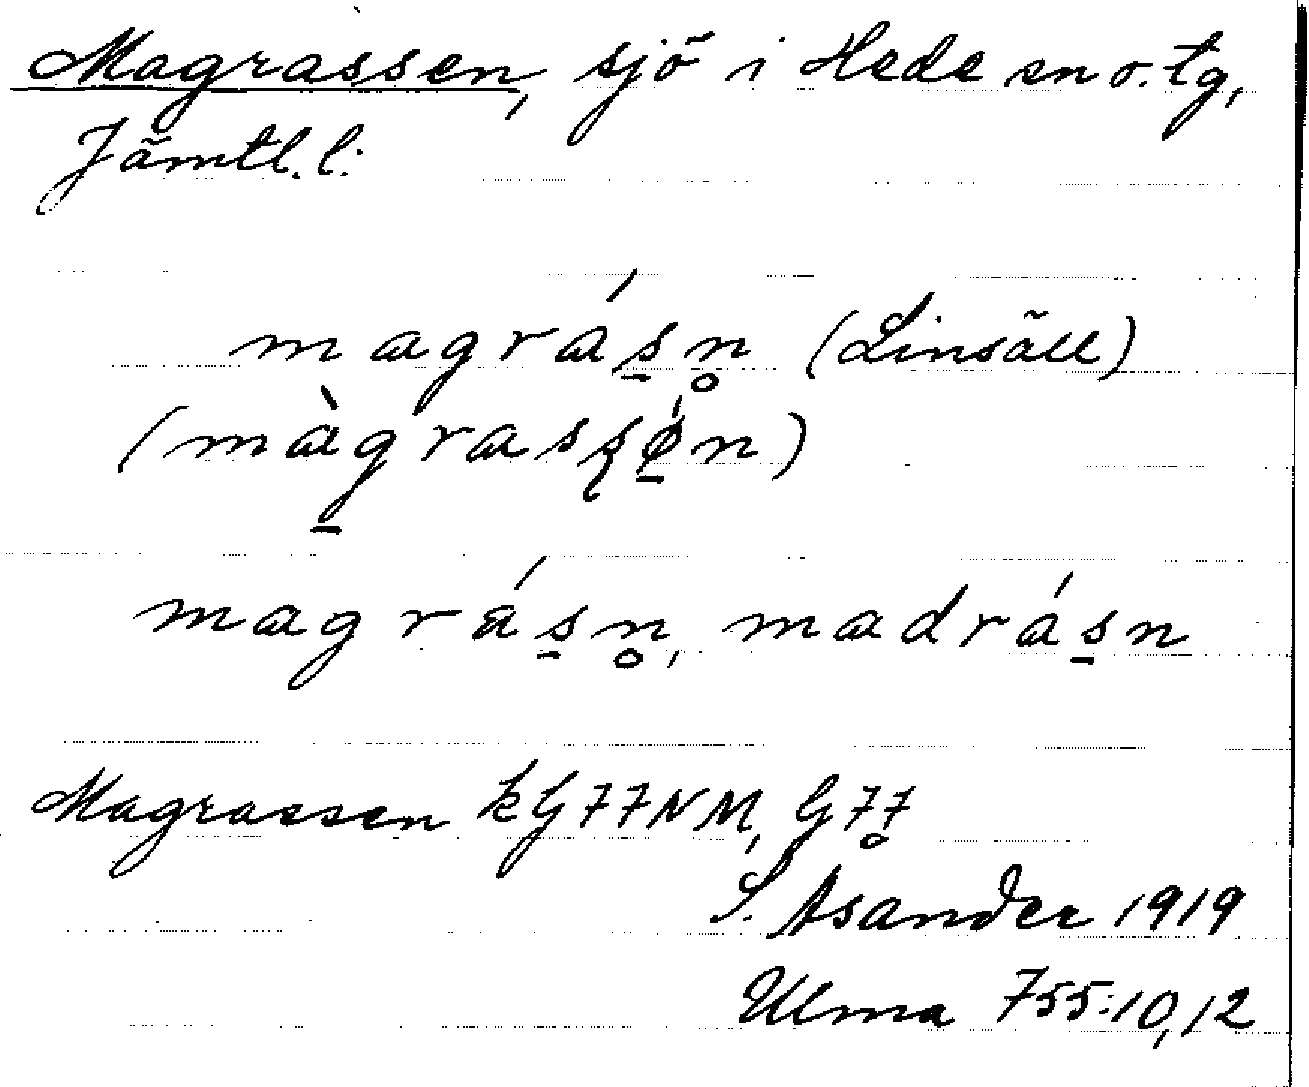 Magrassen, sjö i Hede sn o. tg,
Jämtl. l:
magrás̠n̥ (Linsäll)
(mà̠grassʂǿ̠n)
magrás̠n̥, madrás̠n
Magrassen kG77NM, G77̥
S. Asander 1919
Ulma 755:10,12